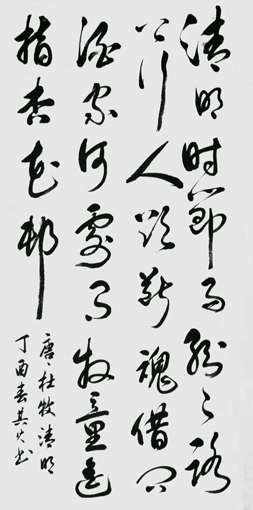 清明时節雨纷々路
上行人欲断魂借问
酒家何處有牧童遥
指杏花邨
唐、杜牧清明
丁酉春其火书